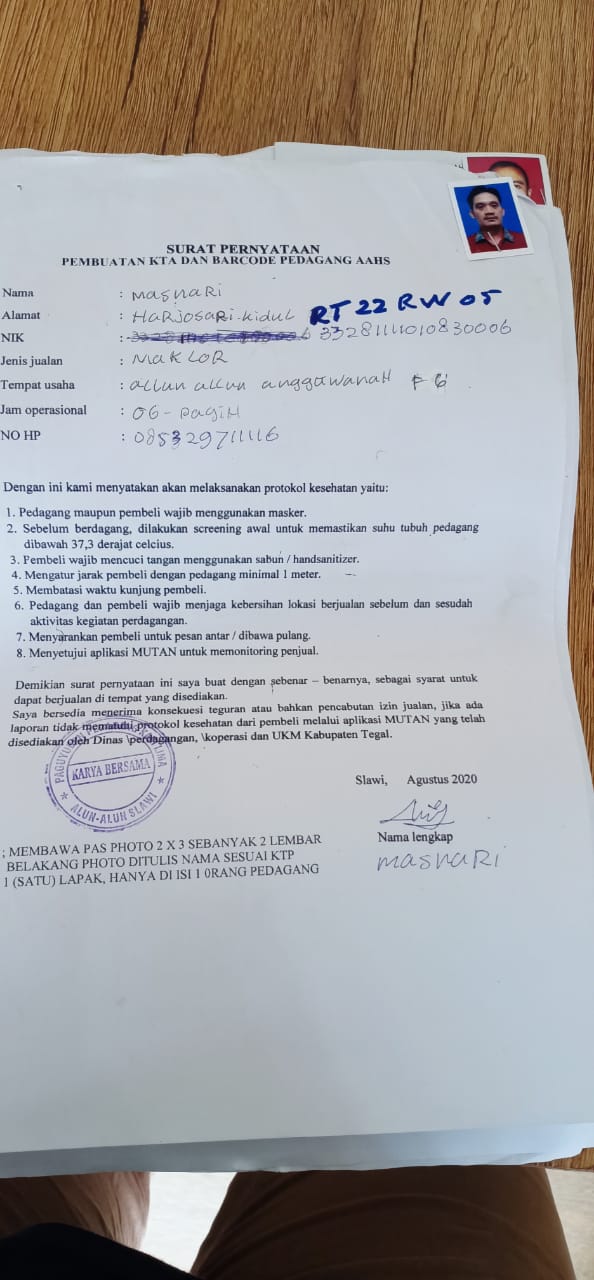 SURAT PERNYATAAN
PEMBUATAN KTA DAN BARCODE PEDAGANG AAHS
Nama : MasnaRi
Alamat : HaRJosaRi-kidul RT 22 RW 05
NIK : 33281111010830006
Jenis jualan : MAKLOR
Tempat usaha : allun allun anggawanaH F 6
Jam operasional : 06 - PagiH
NO HP : 085329711116
Dengan ini kami menyatakan akan melaksanakan protokol kesehatan yaitu:
1. Pedagang maupun pembeli wajib menggunakan masker.
2. Sebelum berdagang, dilakukan screening awal untuk memastikan suhu tubuh pedagang
dibawah 37,3 derajat celcius.
3. Pembeli wajib mencuci tangan menggunakan sabun / handsanitizer.
4. Mengatur jarak pembeli dengan pedagang minimal 1 meter.
5. Membatasi waktu kunjung pembeli.
6. Pedagang dan pembeli wajib menjaga kebersihan lokasi berjualan sebelum dan sesudah
aktivitas kegiatan perdagangan.
7. Menyarankan pembeli untuk pesan antar / dibawa pulang.
8. Menyetujui aplikasi MUTAN untuk memonitoring penjual.
Demikian surat pernyataan ini saya buat dengan sebenar – benarnya, sebagai syarat untuk
dapat berjualan di tempat yang disediakan.
Saya bersedia menerima konsekuesi teguran atau bahkan pencabutan izin jualan, jika ada
laporan tidak mematuhi protokol kesehatan dari pembeli melalui aplikasi MUTAN yang telah
disediakan oleh Dinas \perdagangan, \koperasi dan UKM Kabupaten Tegal.
KARYA BERSAMA
ALUN-ALUN SLAWI
Slawi, Agustus 2020
Nama lengkap
masnaRi
; MEMBAWA PAS PHOTO 2 X 3 SEBANYAK 2 LEMBAR
BELAKANG PHOTO DITULIS NAMA SESUAI KTP
1 (SATU) LAPAK, HANYA DI ISI 1 0RANG PEDAGANG